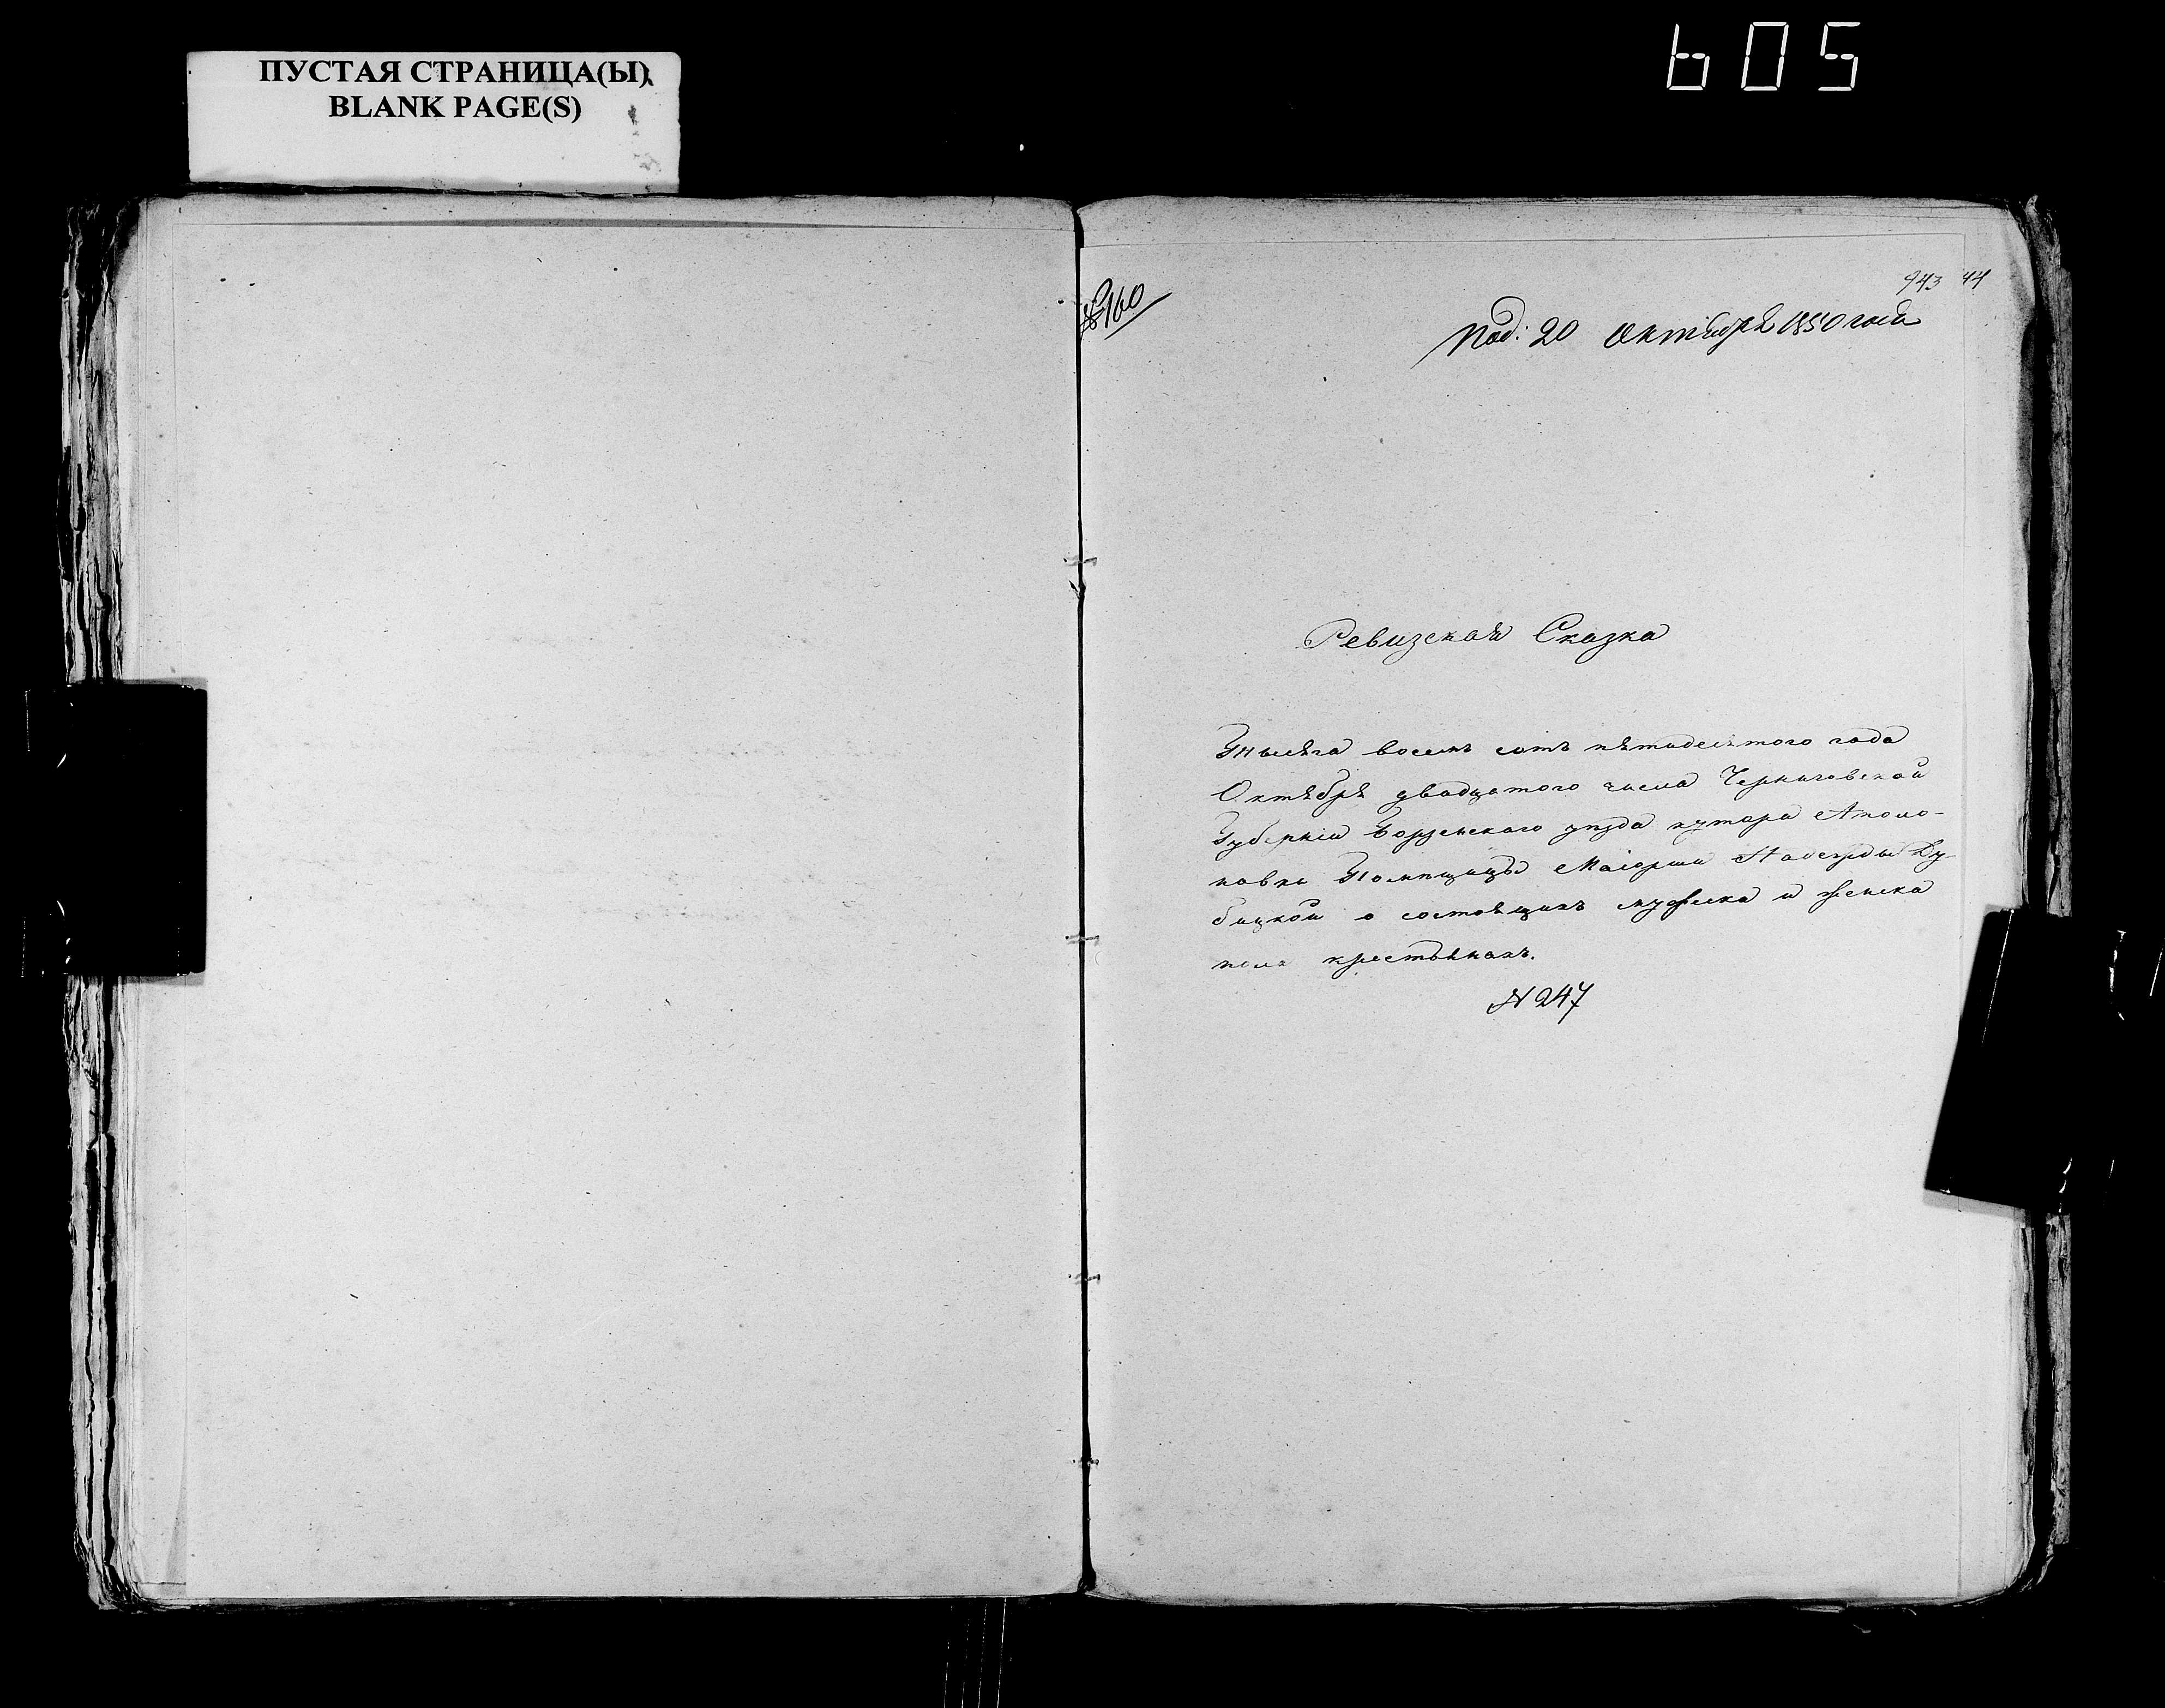 ПУСТАЯ СТРАНИЦА(Ы)
BLANK PAGE(S)
605
943 44
№160
Под: 20 Октября 1850 года
Ревизская Сказка
Тысяча восемь сотъ пятидесятого года
Октября двадцатого числа Черниговской
Губерніи Борзенского уѣзда хутора
Помѣщицы Маіорши Надежды Ду-
бицкой о состоящихъ мужеска и женска
пола крестьянахъ.
N 247